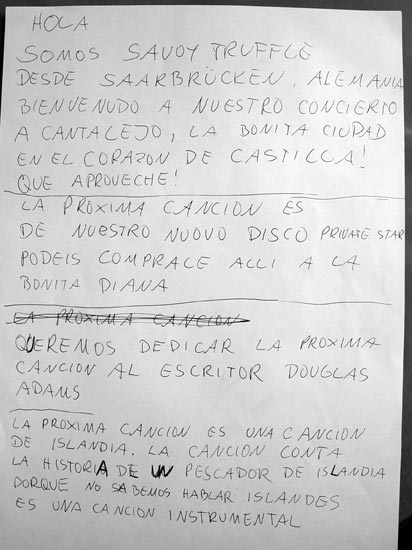 HOLA
SOMOS SAVOY TRUFFLE
DESDE SAARBRÜCKEN, ALEMANIA
BIENVENUDO A NUESTRO CONCIERTO
A CANTALEJO, LA BONITA CIUDAD
EN EL CORAZON DE CASTILLA!
QUE APROVECHE!
LA PROXIMA CANCION ES
DE NUESTRO NUOVO DISCO PRIVATE STAR
PODEIS COMPRALE ALLI A LA
BONITA DIANA
LA PROXIMA CANCION
QUEREMOS DEDICAR LA PROXIMA
CANCION AL ESCRITOR DOUGLAS
ADAMS
LA PROXIMA CANCION ES UNA CANCION
DE ISLANDIA. LA CANCION CONTA
LA HISTORIA DE UN PESCADOR DE ISLANDIA
PORQUE NO SABEMOS HABLAR ISLANDES
ES UNA CANCION INSTRUMENTAL